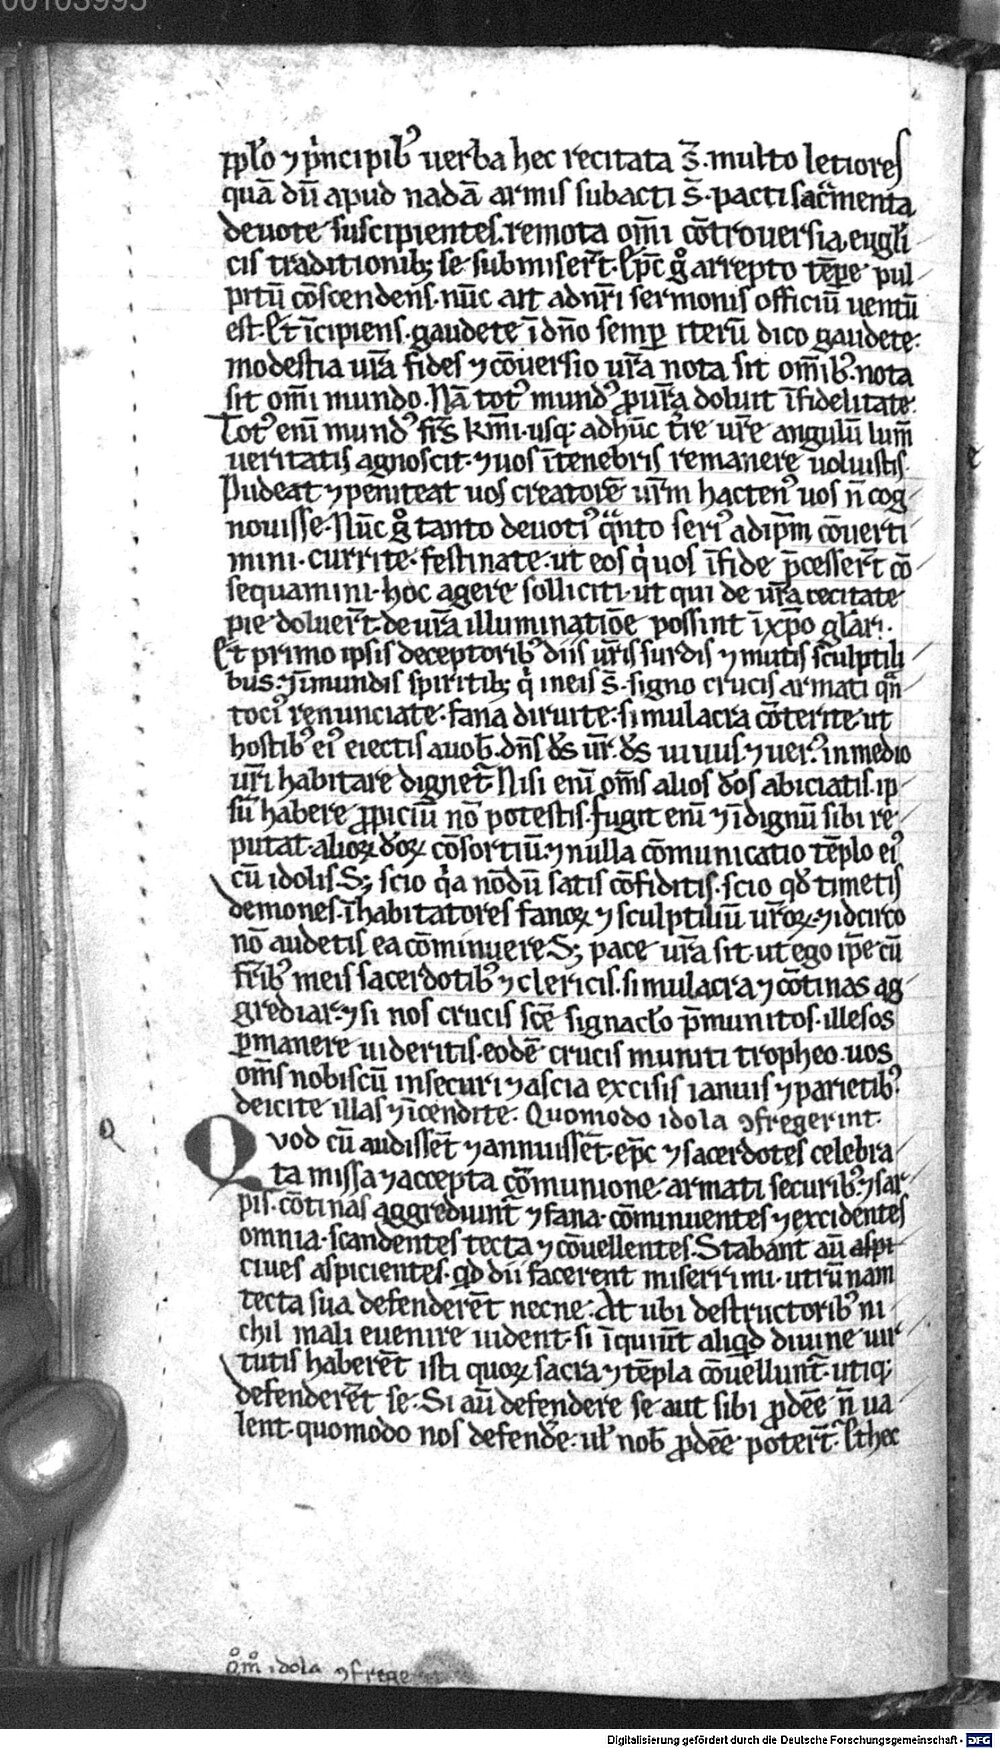 00103995
pp̄lo ⁊ pͥncipibꝰ uerba hec recitata s̄t. multo letiores
quā dū apud nadā armis subacti s̄t. pacti sac̄menta
deuote suscipientes. remota om̄i cōtrouersia, eugl̄i
cis traditionibꝫ se submiser̄t. Ep̄c gͦ arrepto tēꝑe pul
pitū cōscendens. nūc ait ad nr̄i sermonis officiū uentū
est. Et īcipiens. gaudete ī dn̄o semꝑ iterū dico gaudete:
modestia ur̄a fides ⁊ cōuersio ur̄a nota sit om̄ibꝰ. nota
sit om̄i mundo. Nā totꝰ mundꝰ ꝓ ur̄a doluit īfidelitate.
Totꝰ eni mundꝰ fr̄s km̄i. usqꝫ ad hūc tr̄e ur̄e angulū lum̄
ueritatis agnoscit. ⁊ uos ī tenebris remanere uoluistis.
Pudeat ⁊ peniteat uos creatorē ur̄m hactenꝰ uos n̄ cog
nouisse. Nūc gͦ tanto deuotiꝰ qͣnto seriꝰ ad ip̄m cōuerti
mini. currite. festinate. ut eos qͥ uos ī fide p̄cesser̄t cō
sequamini. hoc agere solliciti. ut qui de ur̄a cecitate
pie doluer̄t. de ur̄a illuminatiōe possint ī xp̄o gl̄ari.
Et primo ipsis deceptoribꝰ diis ur̄is surdis ⁊ mutis sculptili
bus. ⁊ īmundis spiritibꝫ qͥ in eis s̄t. signo crucis armati qͣn
tociꝰ renunciate. fana diruite. simulacra cōterite. ut
hostibꝰ eiꝰ eiectis a uob̄. dn̄s ds̄ ur̄. ds̄ uiuus ⁊ uerꝰ. in medio
ur̄i habitare dignet̄. Nisi eni om̄s alios dōs abiciatis. ip
sū habere ꝓpiciū nō potestis. fugit eni ⁊ īdignū sibi re
putat. alioꝝ dōꝝ cōsortiū. ⁊ nulla cōmunicatio tēplo eiꝰ
cū idolis. Sꝫ scio qͥa nōdū satis cōfiditis. scio qd̄ timetis
demones. īhabitatores fanoꝝ ⁊ sculptiliū ur̄oꝝ. ⁊ idcirco
nō audetis ea cōminuere. Sꝫ pace ur̄a sit. ut ego ip̄e cū
fr̄ibꝰ meis sacerdotibꝰ ⁊ clericis. simulacra ⁊ cōtinas ag
grediar. ⁊ si nos crucis sc̄e signaclo p̄munitos. illesos
ꝑmanere uideritis. eodē crucis muniti tropheo. uos
om̄s nobiscū in securi ⁊ ascia excisis ianuis ⁊ parietibꝰ
deicite illas ⁊ īcendite. Quomodo idola ꝯfregerint.
Quod cū audissēt ⁊ annuissēt. ep̄c ⁊ sacerdotes celebra
ta missa ⁊ accepta cōmunione. armati securibꝰ ⁊ sar
pis. cōtinas aggrediunt̄ ⁊ fana. cōminuentes ⁊ excidentes
omnia. scandentes tecta ⁊ cōuellentes. Stabant aū aspi
ciues aspicientes. qd̄ dii facerent miserrimi. utrūnam
tecta sua defenderēt necne. At ubi destructoribꝰ ni
chil mali euenire uident. si īquiūt aliqd̄ diuine uir
tutis haberēt isti quoꝝ sacra ⁊ tēpla cōuellunt̄. utiqꝫ
defenderēt se. Si aū defendere se aut sibi ꝓdēe n̄ ua
lent. quomodo nos defende. ul̄ nob̄ ꝓdēe poter̄t. Et hec
Q
idola ꝯfrege
Digitalisierung gefördert durch die Deutsche Forschungsgemeinschaft - DFG